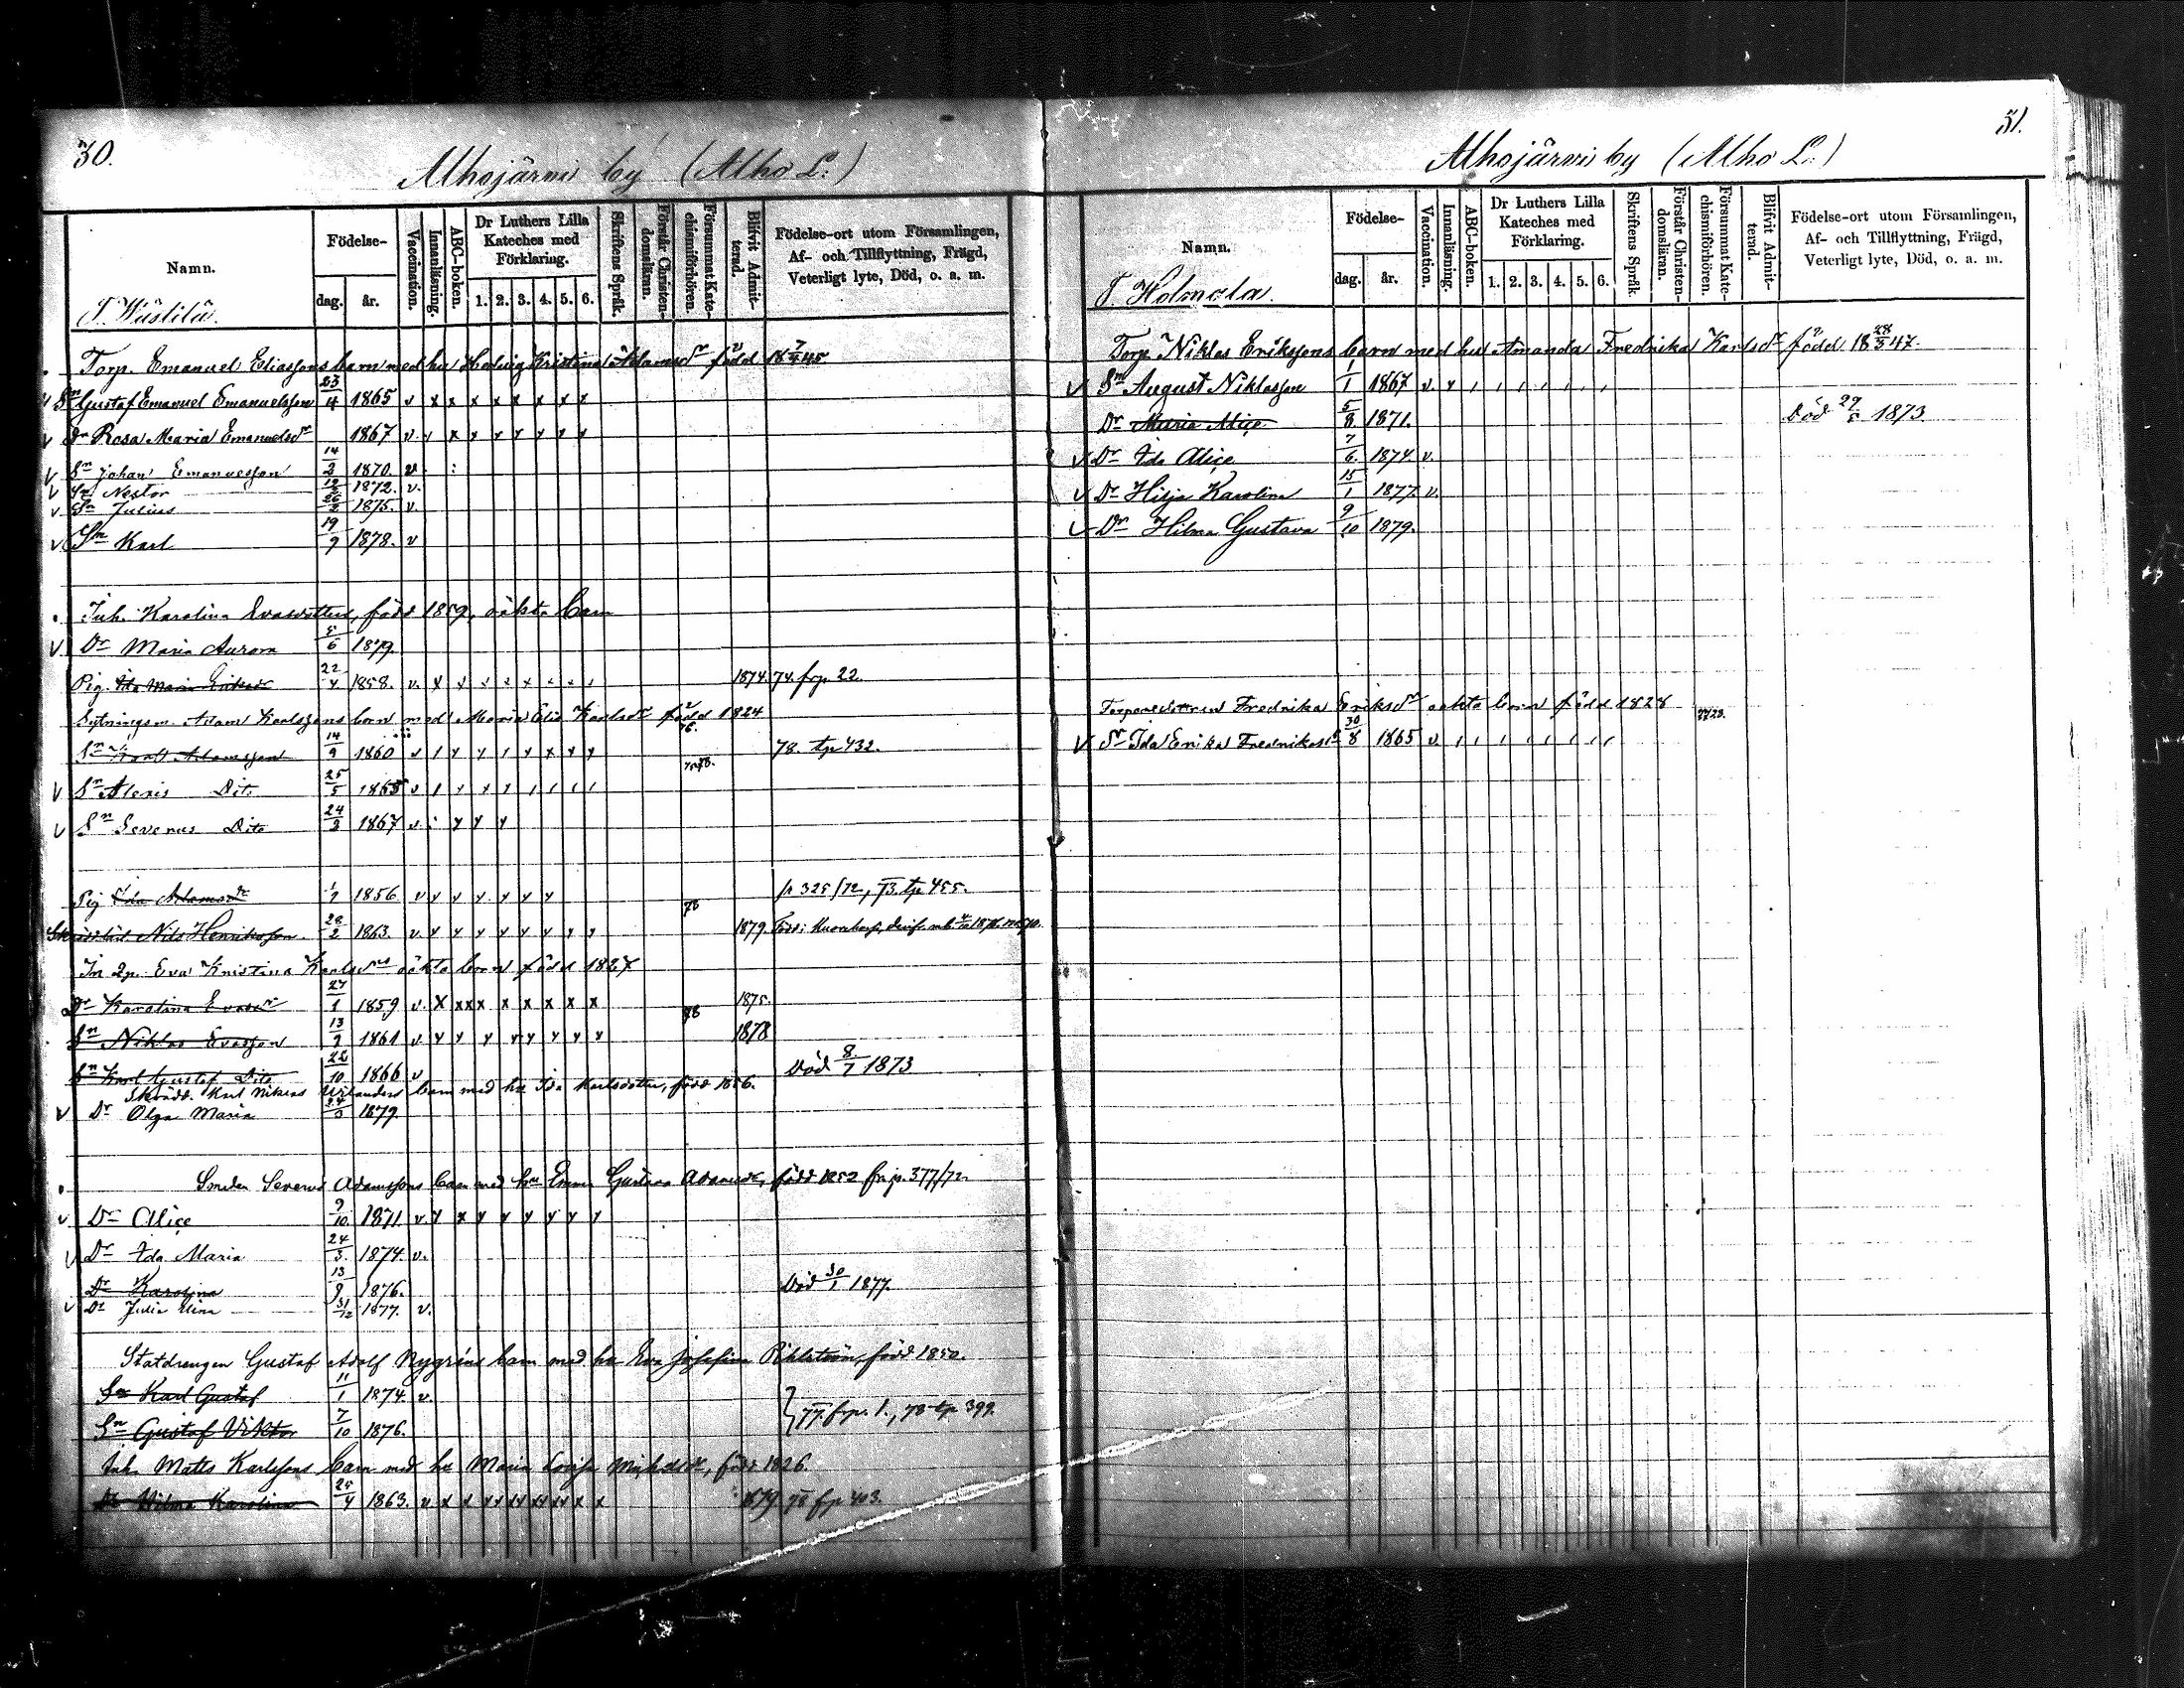 30.
Alhojärvi by (Alho L:)
Namn.
Födelse-
dag.
år.
Vaccination.
Innanläsning.
ABC-boken.
Dr Luthers Lilla Kateches med Förklaring.
1. 2. 3. 4. 5. 6.
Skriftens Språk.
Förstår Christendomsläran.
Försummat Katechismiförhören.
Blifvit Admitterad.
Födelse-ort utom Församlingen,
Af- och Tillflyttning, Frägd,
Veterligt lyte, Död, o. a. m.
Torp. Emanuel Eliassons barn med hu Hedvig Kristina Adamsdr född 18 7/4 45
Sn Gustaf Emanuel Emanuelsson 23/4 1865 v x x x x x x x x
Dr Rosa Maria Emanuelsdr 1867 v.
Sn Johan Emanuelsson 14/2 1870. v
Sn Nestor 1872. v.
Sn Julius 1875. v
Sn Karl 19/9 1878. v
Inh. Karolina Evasdotters, född 1859, oäkta barn
Dr Maria Aurora 5/6 1879
Pig. Ida Maria 22/4 1858. v. 1874. 74. frp. 22.
Sytningsm. Adam Karlssons barn med Maria Elis Karlsdr född 1824
Sn Karl Adamsson 14/9 1860 v 78. tp 432.
Sn Alexis Dito 25/5 1865 v
Sn Severus Dito 24/3 1867 v
Pig Ida Adamsdr 1856 v p 325/72, 73. tp 455.
Nils Henriksson 28/2 1863. v. 78 1879.
In 2p. Eva Kristina Karlsdrs oäkta barn född 1827
Dr Karolina Evasdr 27/1 1859 v. x x x x x x x x x 1875.
Sn Niklas Evasson 13/2 1861 v 78 1878
Sn Karl Gustaf Dito 22/10 1866 v Död 8/7 1873
Karl Niklas barn med hu Ida Karlsdotter, född 1856.
Dr Olga Maria 24/3 1879
Smeden Severus Adamssons barn med hu Emma Gustava Adamsdr, född 1852 frp. 377/72.
Dr Alice 9/10 1871 v
Dr Ida Maria 24/3 1874. v.
Dr Karolina 13/9 1876. Död 30/1 1877.
Dr Julia Elina 31/12 1877. v.
Statdrengen Gustaf Adolf Nygréns barn med hu Eva Josefina född 1850.
Sn Karl Gustaf 11/1 1874. v.
Sn Gustaf Viktor 7/10 1876. 77. frp. 1., 78 tp 399.
Inh. Matts Karlssons barn med hu Maria Lovisa född 1826.
Dr Wilma Karolina 25/4 1863. v 1879. 78 frp 403.
31.
Alhojärvi by (Alho L:)
Namn.
T. Holmala.
Födelse-
dag.
år.
Vaccination.
Innanläsning.
ABC-boken.
Dr Luthers Lilla Kateches med Förklaring.
1. 2. 3. 4. 5. 6.
Skriftens Språk
Förstår Christendomsläran.
Försummat Katechismiförhören.
Blifvit Admitterad.
Födelse-ort utom Församlingen,
Af- och Tillflyttning, Frägd,
Veterligt lyte, Död, o. a. m.
Torp Niklas Erikssons barn med hu Amanda Fredrika Karlsdr född 18 28/3 47.
Sn August Niklasson 1/1 1867 v.
Dr Maria Alice 5/8 1871. Död 1873
Dr Ida Alice 7/6 1874. v.
Dr Hilja Karolina 15/1 1877. v.
Dr Hilma Gustava 9/10 1879.
Fredrika Eriksdr oäkta barn född 1828
Dr Ida Erika Fredrikasdr 30/8 1865 v.